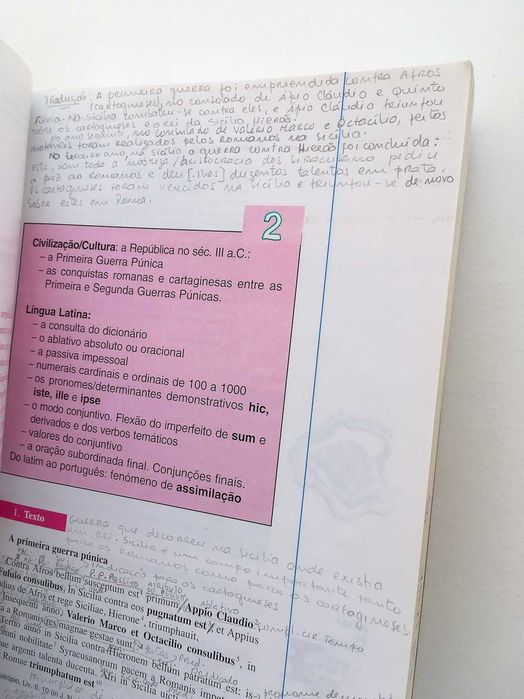 Tradução: A primeira guerra foi empreendida contra Afros
(cartagineses), no consolado de Ápio Cláudio e Quinto
Flúvio. Na Sicília combateu-se contra eles, e Ápio Cláudio triunfou
sobre os cartagineses e o rei da Sicília, Hierão.
No ano seguinte, no consulado de Valério Marco e Octacílio, feitos
notáveis foram realizados pelos romanos na Sicília.
No terceiro ano, na Sicília, a guerra contra Hierão foi concluída:
este, com toda a nobreza/aristocracia dos Siracusanos pediu
a paz ao romanos e deu [-lhes] duzentos talentos em prata.
Os cartagineses foram vencidos na Sicília e triunfou-se de novo
sobre estes em Roma.
2
Civilização/Cultura: a República no séc. III a.C.:
– a Primeira Guerra Púnica
– as conquistas romanas e cartaginesas entre as
Primeira e Segunda Guerras Púnicas.
Língua Latina:
– a consulta do dicionário
– o ablativo absoluto ou oracional
– a passiva impessoal
– numerais cardinais e ordinais de 100 a 1000
– os pronomes/determinantes demonstrativos hic,
iste, ille e ipse
– o modo conjuntivo. Flexão do imperfeito de sum e
derivados e dos verbos temáticos
– valores do conjuntivo
– a oração subordinada final. Conjunções finais.
Do latim ao português: fenómeno de assimilação
1. Texto
Guerra que decorreu na Sicília onde existia
um rei. Sicília e um campo importante tanto
para os romanos como para os cartagineses.
A primeira guerra púnica
Contra Afros bellum susceptum est primum Appio Claudio
Fulvio consulibus, in Sicilia contra eos pugnatum est et Appius
dius de Afris et rege Siciliae, Hierone, triumphauit,
Insequenti anno, Valerio Marco et Octacilio consulibus, in
a Romanis res magnae gestae sunt.
tertio in Sicilia contra Hieronem bellum patratum est: is
nobilitate Syracusanorum pacem a Romanis
ue argenti talenta ducenta. Afri in Sicilia uicti
Romae triumphatum est